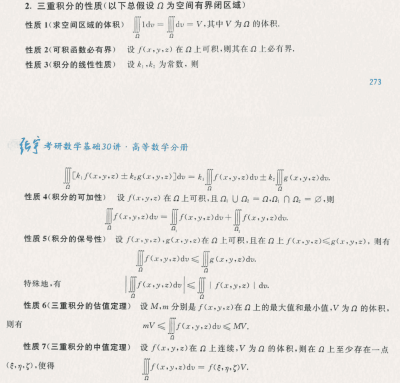 2. 三重积分的性质(以下总假设 Ω 为空间有界闭区域)
性质 1(求空间区域的体积) ∭_Ω 1dv = ∭_Ω dv = V,其中 V 为 Ω 的体积.
性质 2(可积函数必有界) 设 f(x,y,z) 在 Ω 上可积,则其在 Ω 上必有界.
性质 3(积分的线性性质) 设 k₁,k₂ 为常数,则
273
张宇 考研数学基础30讲·高等数学分册
∭_Ω [k₁f(x,y,z) ± k₂g(x,y,z)]dv = k₁∭_Ω f(x,y,z)dv ± k₂∭_Ω g(x,y,z)dv.
性质 4(积分的可加性) 设 f(x,y,z) 在 Ω 上可积,且 Ω₁ ∪ Ω₂ = Ω,Ω₁ ∩ Ω₂ = ∅,则
∭_Ω f(x,y,z)dv = ∭_Ω₁ f(x,y,z)dv + ∭_Ω₂ f(x,y,z)dv.
性质 5(积分的保号性) 设 f(x,y,z),g(x,y,z) 在 Ω 上可积,且在 Ω 上 f(x,y,z)≤g(x,y,z),则有
∭_Ω f(x,y,z)dv ≤ ∭_Ω g(x,y,z)dv.
特殊地,有 |∭_Ω f(x,y,z)dv| ≤ ∭_Ω | f(x,y,z) | dv.
性质 6(三重积分的估值定理) 设 M,m 分别是 f(x,y,z) 在 Ω 上的最大值和最小值,V 为 Ω 的体积,
则有 mV ≤ ∭_Ω f(x,y,z)dv ≤ MV.
性质 7(三重积分的中值定理) 设 f(x,y,z) 在 Ω 上连续,V 为 Ω 的体积,则在 Ω 上至少存在一点
(ξ,η,ζ),使得 ∭_Ω f(x,y,z)dv = f(ξ,η,ζ)V.